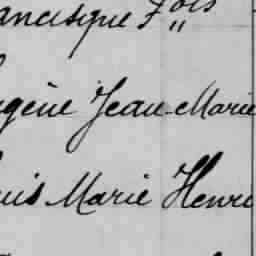 ancisque F.ois
gène Jean-Marie
uis Marie Henri